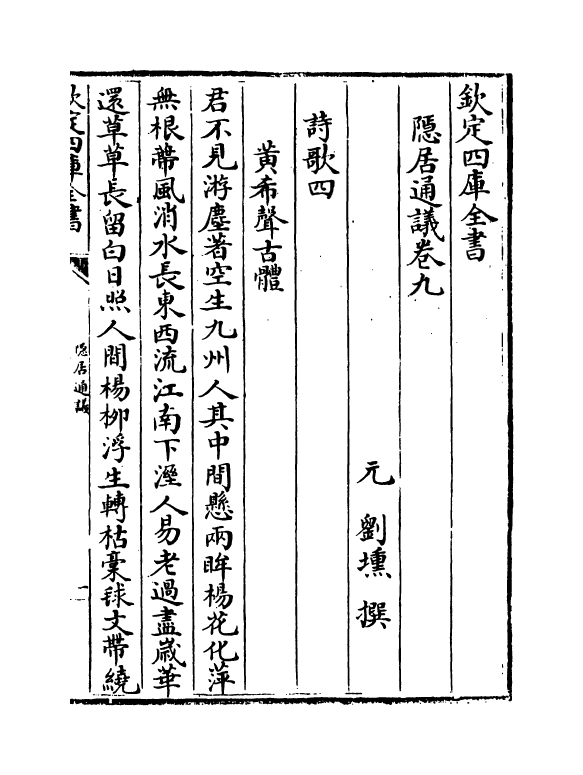 欽定四庫全書
隱居通議卷九
元 劉壎 撰
詩歌四
黃希聲古體
君不見游塵著空生九州人其中間懸兩眸楊花化萍
無根蔕風消水長東西流江南下溼人易老過盡歲華
還草草長留白日照人間楊柳浮生轉枯槀毬文帶繞
欽定四庫全書
隱居通議
一